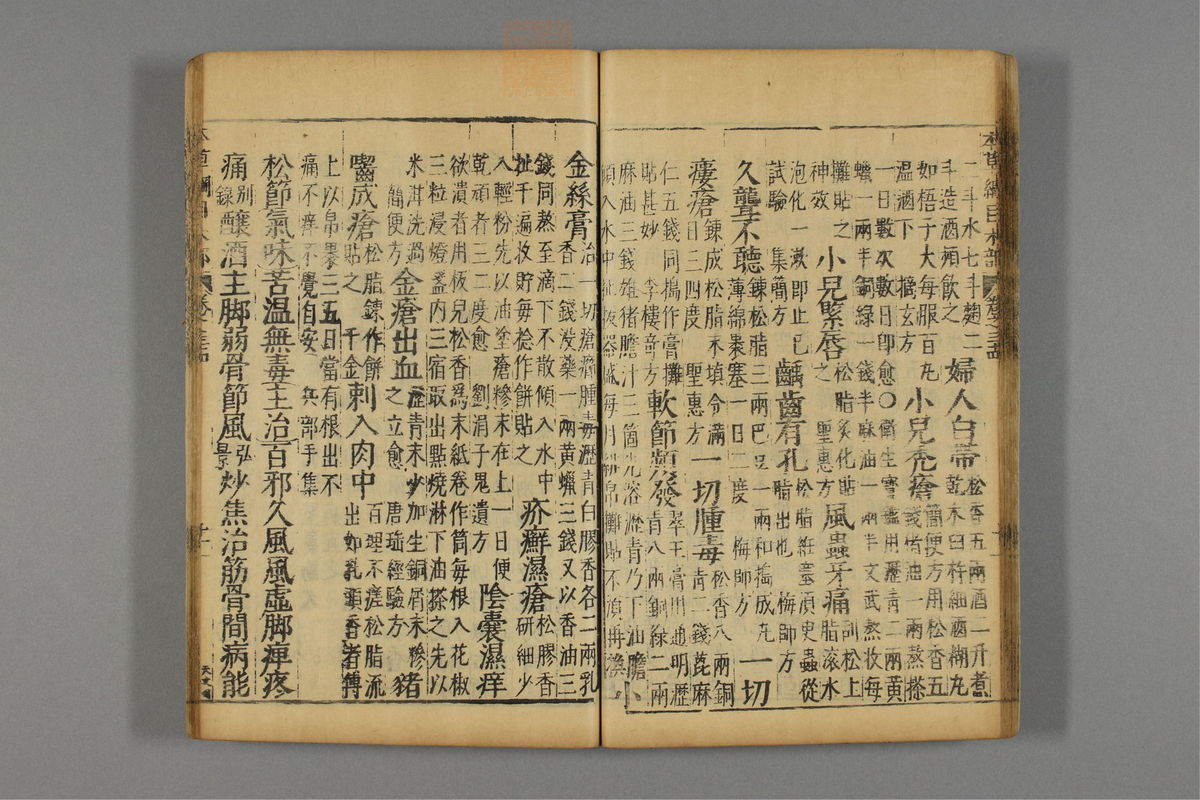 本草綱目木部 卷之三十四
二斗水七斗麴二斗造酒頻飲之 婦人白帶 松香五兩酒二升煮乾木臼杵細酒糊丸
如梧子大每服百丸温酒下 摘玄方 小兒禿瘡 簡便方用松香五錢猪油一兩熬搽
一日數次數日即愈○衛生寶鑑用瀝青二兩黄蠟一兩半銅綠一錢半麻油一兩半文武熬收每
攤貼之神效 小兒緊唇 松脂炙化貼之 聖惠方 風蟲牙痛 刮松上脂滚水
泡化一漱即止已試驗 集簡方 齲齒有孔 松脂紝塞須臾蟲從脂出也 梅師方
久聾不聽 鍊松脂三兩巴豆一兩和擣成丸薄綿裹塞一日二度 梅師方 一切
瘻瘡 鍊成松脂末填令滿日三四度 聖惠方 一切腫毒 松香八兩銅青二錢蓖麻
仁五錢同搗作膏攤貼甚妙 李樓奇方 軟節頻發 翠玉膏用通明瀝青八兩銅綠二兩
麻油三錢雄猪膽汁三箇先溶瀝青乃下油膽傾入水中扯拔器盛每用緋帛攤貼不須再換 小
金絲膏 治一切瘡癤腫毒瀝青白膠香各二兩乳香二錢没藥一兩黄蠟三錢又以香油三
錢同熬至滴下不散傾入水中扯千遍收貯每捻作餅貼之 疥癬濕瘡 松膠香研細少
入輕粉先以油塗瘡糝末在上一日便乾頑者三二度愈 劉涓子鬼遺方 陰囊濕痒
欲潰者用板兒松香爲末紙卷作筒每根入花椒三粒浸燈盞内三宿取出點燒淋下油搽之先以
米泔洗過 簡便方 金瘡出血 瀝青末少加生銅屑末糝之立愈 唐瑶經驗方 猪
齧成瘡 松脂鍊作餅貼之 千金 刺入肉中 百理不瘥松脂流出如乳頭香者傅
上以帛裹三五日當有根出不痛不痒不覺自安 兵部手集
松節氣味苦温無毒主治百邪久風風虚脚痺疼
痛别錄釀酒主脚弱骨節風弘景炒焦治筋骨間病能
本草綱目木部 卷之三十四 十一